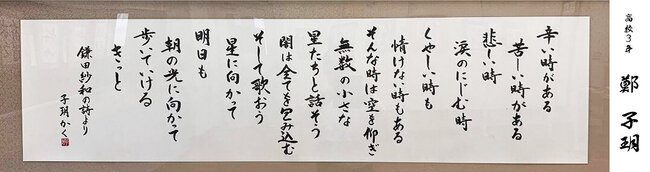 辛い時がある
苦しい時がある
悲しい時
涙のにじむ時
くやしい時も
情けない時もある
そんな時は空を仰ぎ
無数の小さな
星たちと話そう
闇は全てを包み込む
そして歌おう
星に向かって
明日も
朝の光に向かって
歩いていける
きっと
鎌田紗和の詩より
子玥かく
高校3年
鄭子玥